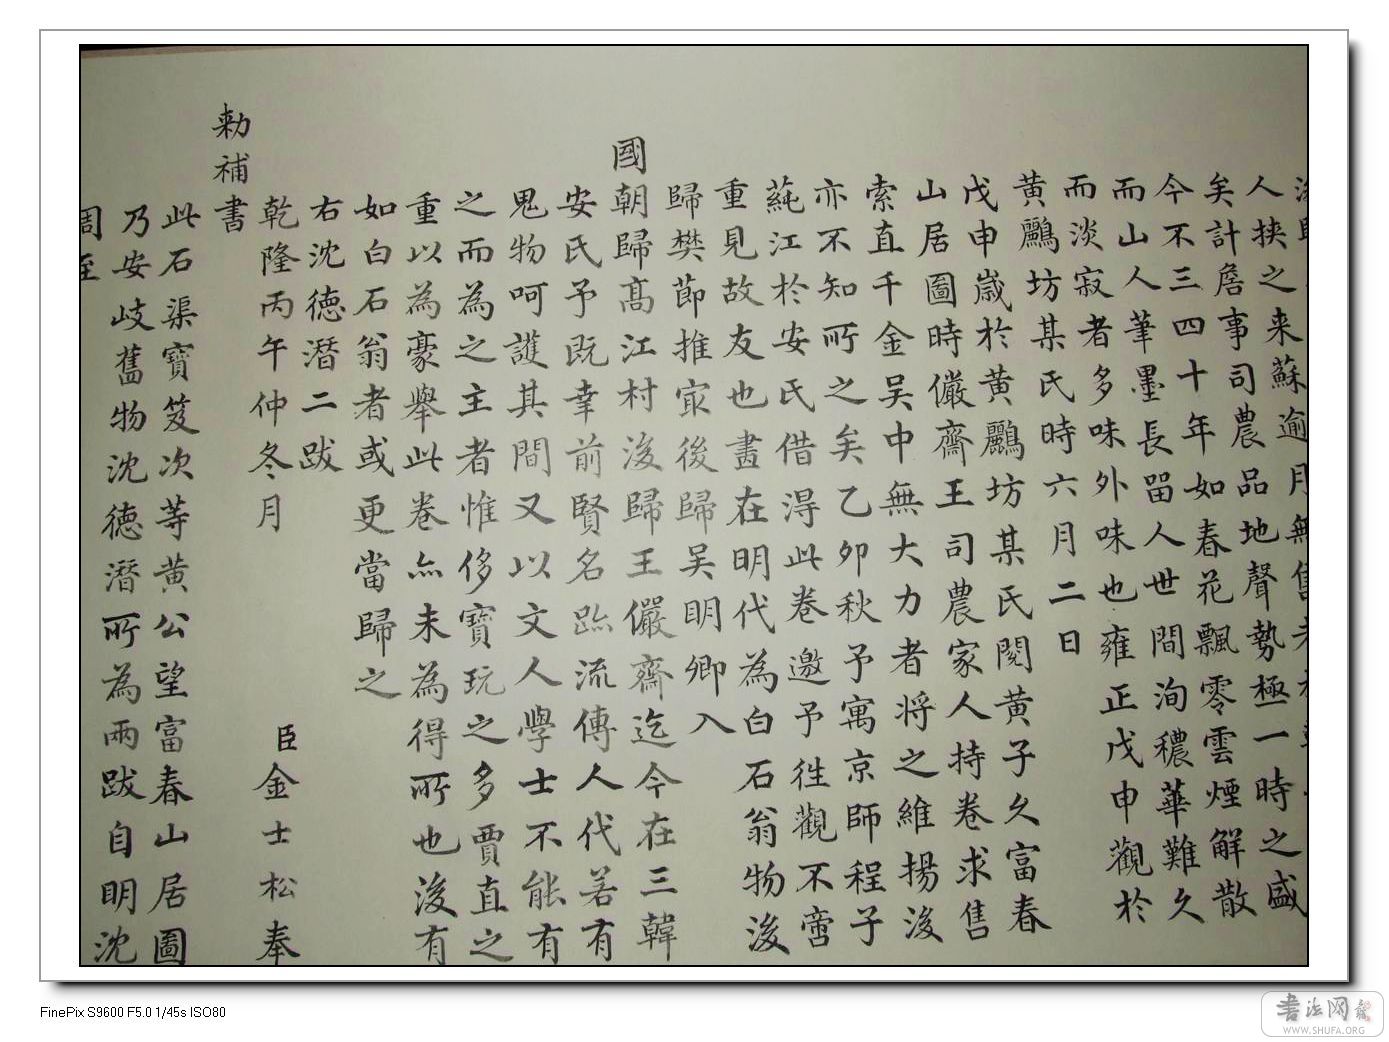 人挾之来蘇逾月無售
矣計詹事司農品地聲勢極一時之盛
今不三四十年如春花飄零雲煙解散
而山人筆墨長留人世間洵穠華難久
而淡寂者多味外味也雍正戊申觀於
黄鸝坊某氏時六月二日
戊申歲於黄鸝坊某氏閱黄子久富春
山居圖時儼齋王司農家人持卷求售
索直千金吴中無大力者将之維揚後
亦不知所之矣乙卯秋予寓京師程子
蒓江於安氏借得此卷邀予往觀不啻
重見故友也畫在明代為白石翁物後
歸樊節推冣後歸吴明卿入
國朝歸髙江村後歸王儼齋迄今在三韓
安氏予既幸前賢名跡流傳人代若有
鬼物呵護其間又以文人學士不能有
之而為之主者惟侈寶玩之多賈直之
重以為豪舉此卷亦未為得所也後有
如白石翁者或更當歸之
右沈德潛二跋
乾隆丙午仲冬月 臣金士松奉
勅補書
此石渠寶笈次等黄公望富春山居圖
乃安岐舊物沈德潛所為兩跋自明沈
周至
FinePix S9600 F5.0 1/45s ISO80
书法网
WWW.SHUFA.ORG